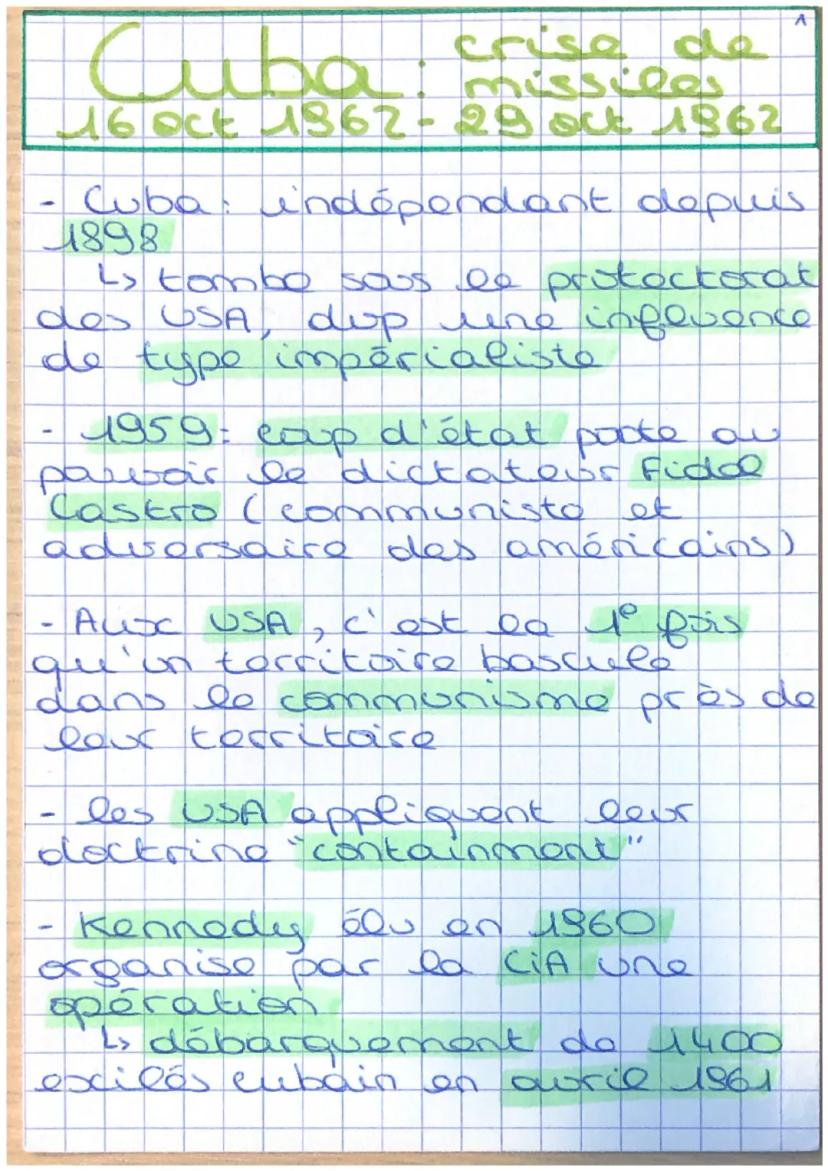 1
Cuba : crise de
missiles
16 oct 1962 - 29 oct 1962
- Cuba : indépendant depuis
1898
↳ tombe sous le protectorat
des USA, dvp une influence
de type impérialiste
- 1959 : coup d'état porte au
pouvoir le dictateur Fidel
Castro (communiste et
adversaire des américains)
- Aux USA, c'est la 1e fois
qu'un territoire bascule
dans le communisme près de
leur territoire
- les USA appliquent leur
docktrine "containment"
- Kennedy élu en 1960
organise par la CiA une
opération
↳ débarquement de 1400
exilés cubain en avril 1961